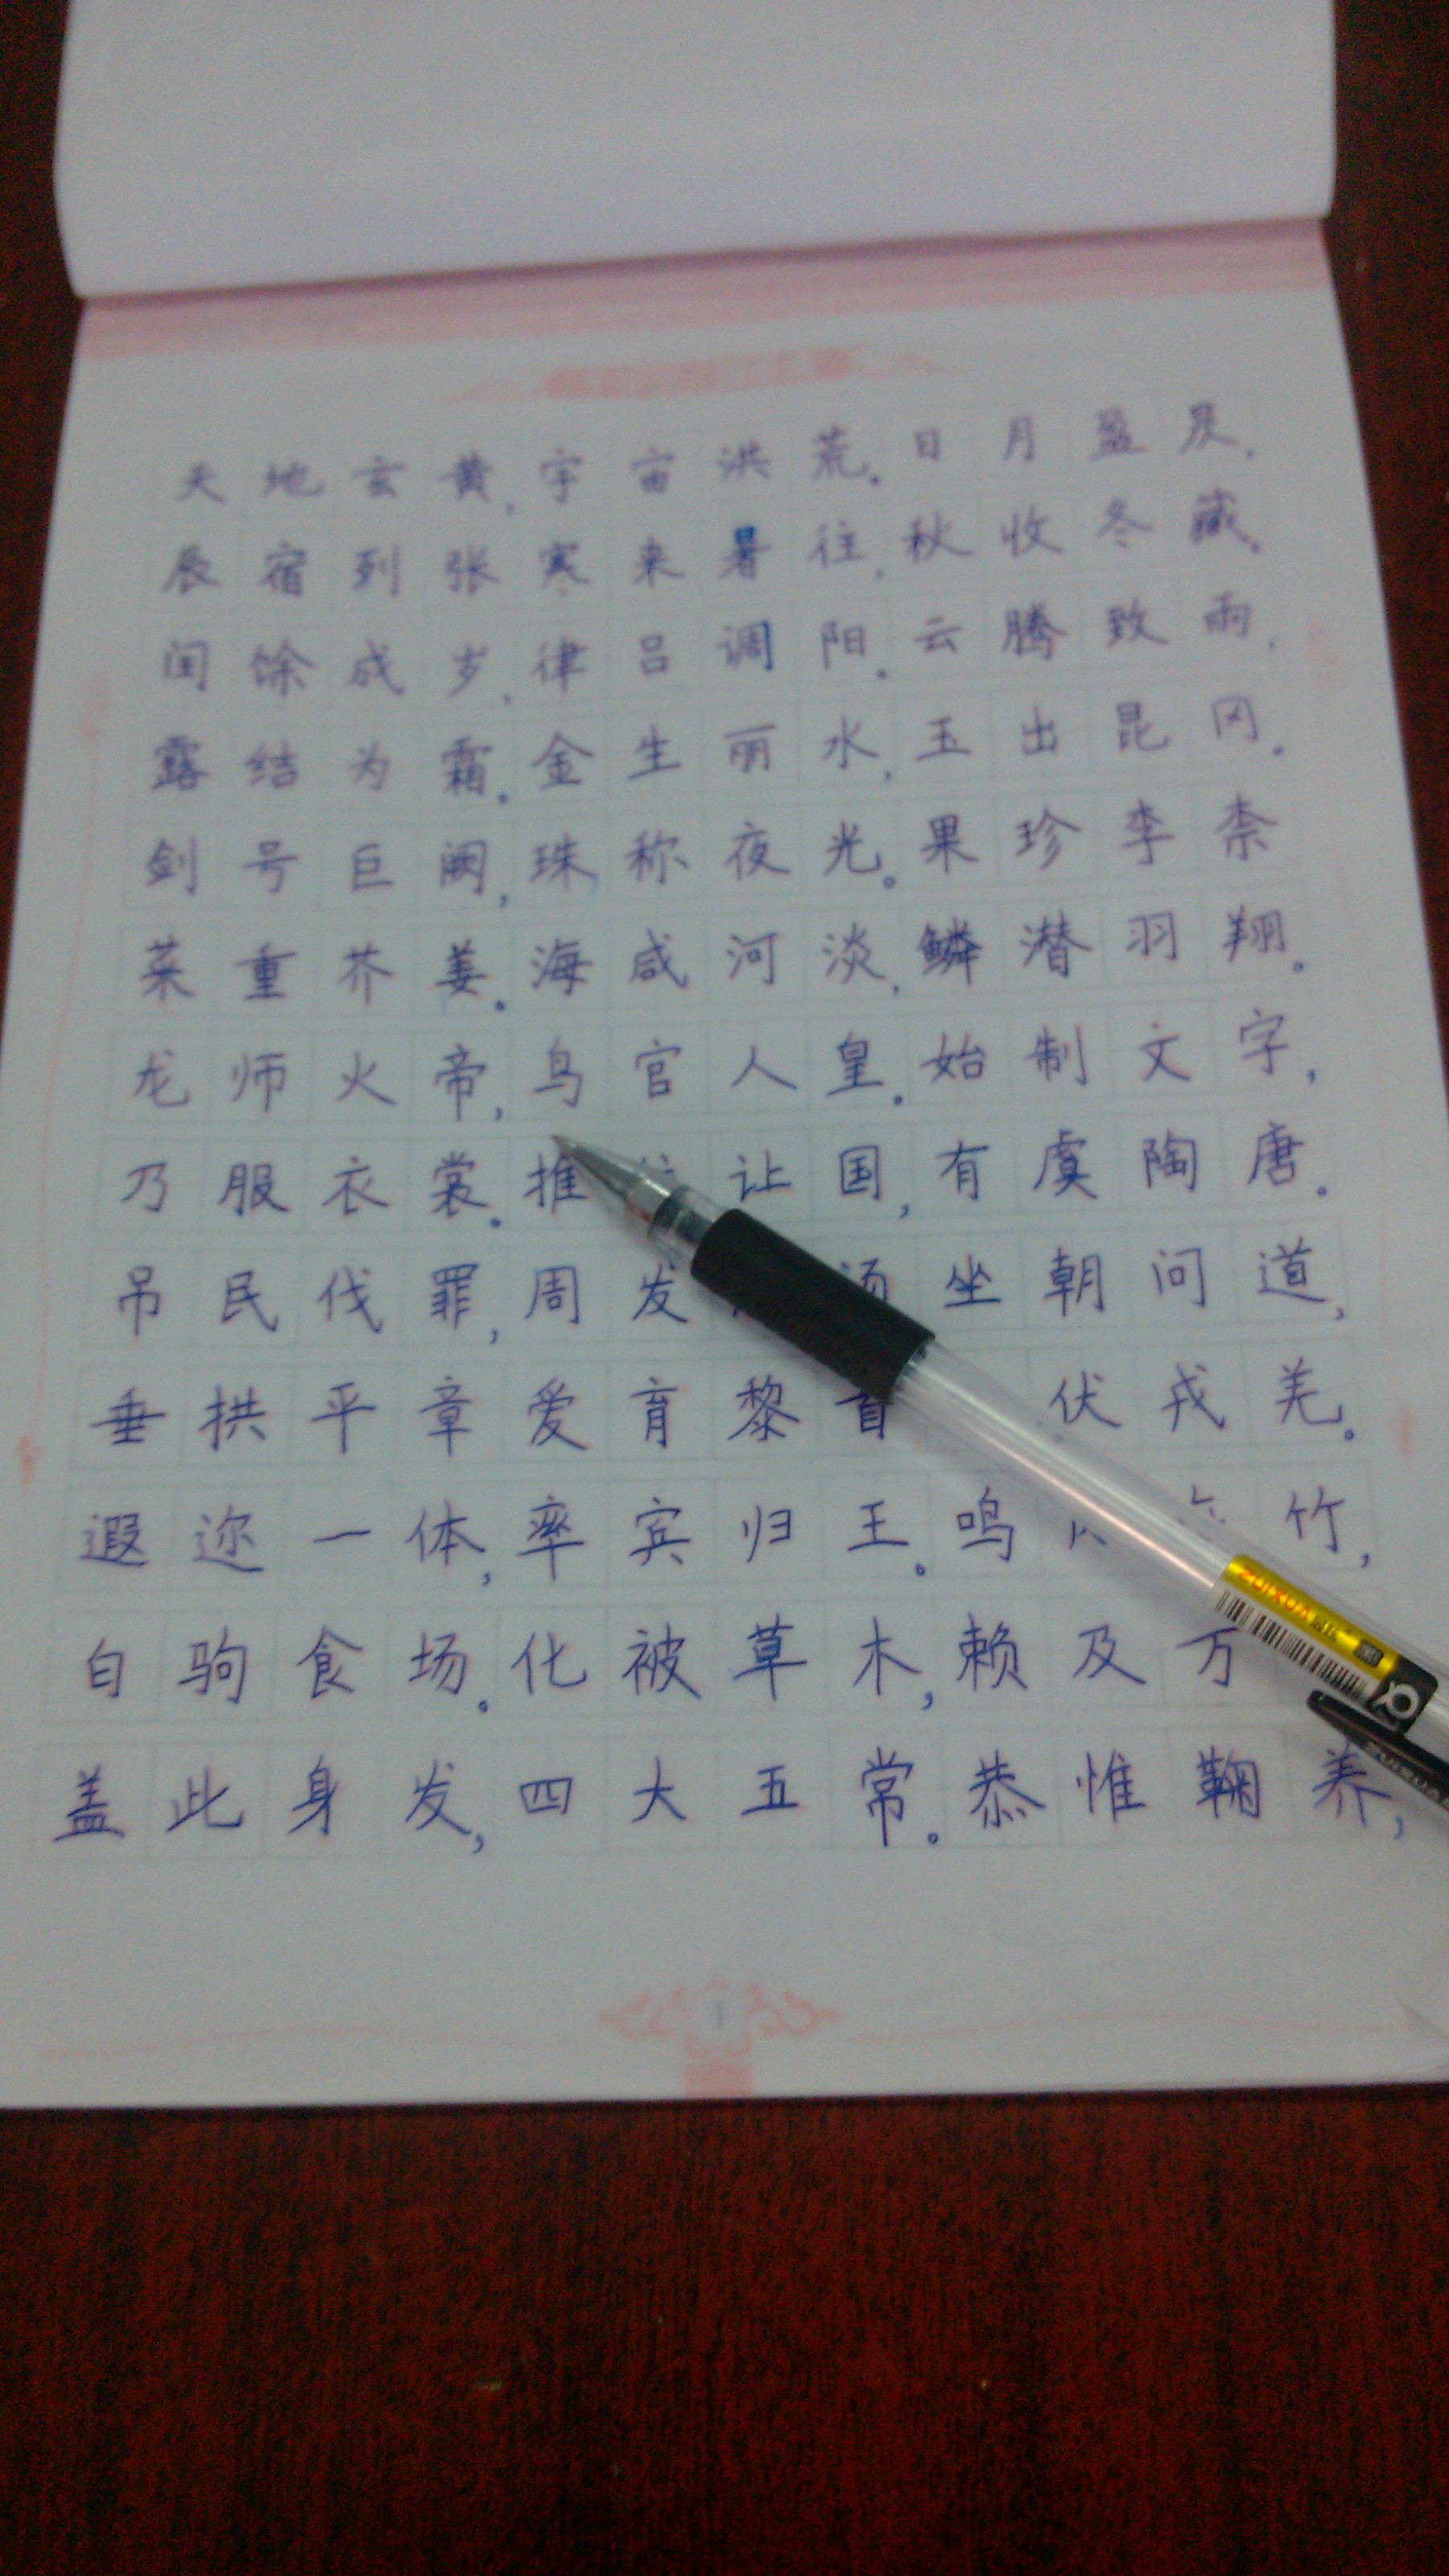 天地玄黄,宇宙洪荒。日月盈昃,
辰宿列张寒来暑往,秋收冬藏。
闰馀成岁,律吕调阳。云腾致雨,
露结为霜。金生丽水,玉出昆冈。
剑号巨阙,珠称夜光。果珍李柰
菜重芥姜。海咸河淡,鳞潜羽翔。
龙师火帝,鸟官人皇。始制文字,
乃服衣裳。推让国,有虞陶唐。
吊民伐罪,周发汤坐朝问道,
垂拱平章爱育黎首伏戎羌。
遐迩一体,率宾归王。鸣竹,
白驹食场。化被草木,赖及万
盖此身发,四大五常。恭惟鞠养,
ZUIXUA
1